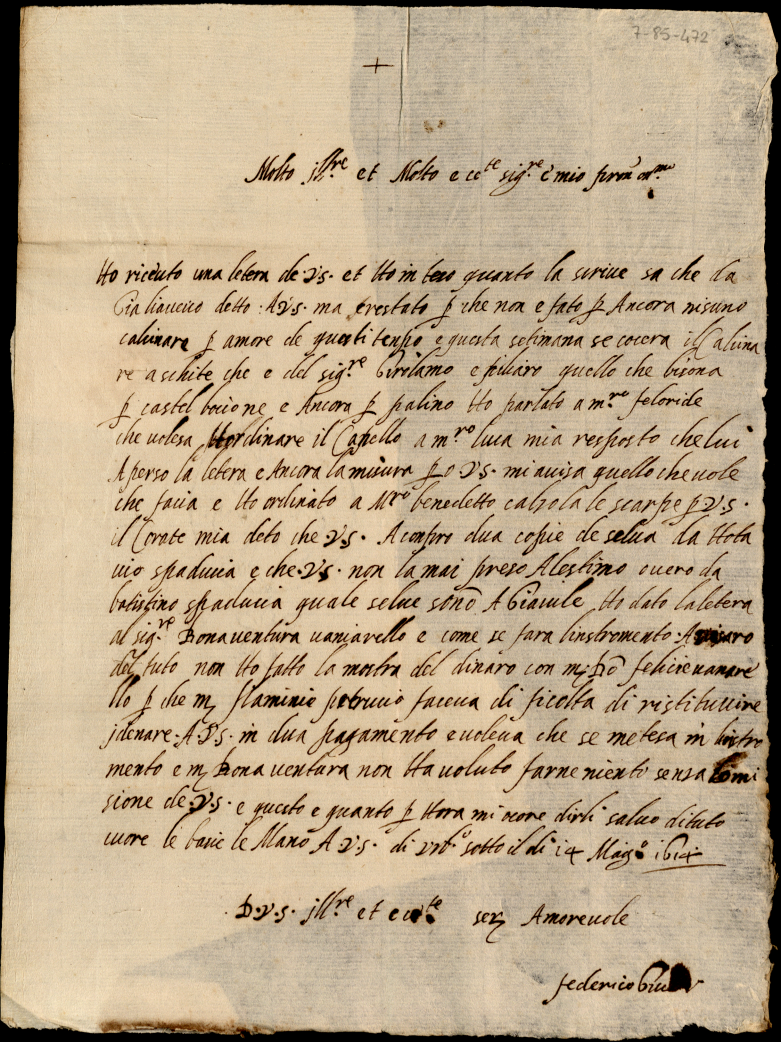 7-85-472
+
Molto jll.re et Molto e cc.te sig.re e mio
Ho riceuto una letera de .V.S. et Ho inteso quanto la scrive sa che da
detto .A V.S. ma restato p che non e fato p Ancora nisuno
calcinare p amore de questi tempo e questa setimana se cocera il Calcina
re a schite che e del sig.re Girolamo e pilliaro quello che bisona
p castel bocione e Ancora p palino Ho parlato a m.ro feloride
che volesa Hordinare il Capello a m.ro luca mia resposto che lui
Aperso la letera e Ancora la misura p o V.S. mi avisa quello che vole
che facia e Ho ordinato a M.ro benedetto calzola le scarpe p V.S.
il Corate mia deto che V.S. A conpro dua copie de selva da Hota
vio spaducia e che .V.S. non la mai preso Alestimo overo da
batistino spaducia quale selve sono A Ho dato la letera
al sig.re Bonaventura vaniarello e come se fara linstromento Avisaro
del tuto non Ho fatto la mostra del dinaro con felicie vanare
llo p che flaminio petrucio faceva di ficolta di ristituire
j denare .A V.S. in dua pagamento e voleva che se metesa in
mento e Bonaventura non Ha voluto farne niente senza
sione de .V.S. e questo e quanto p Hora mi dirli salvo di tuto
cuore le bacie le Mano A V.S. di sotto il di 14 1614
D.V.S. jll.re et ecc.te Amorevole
federico